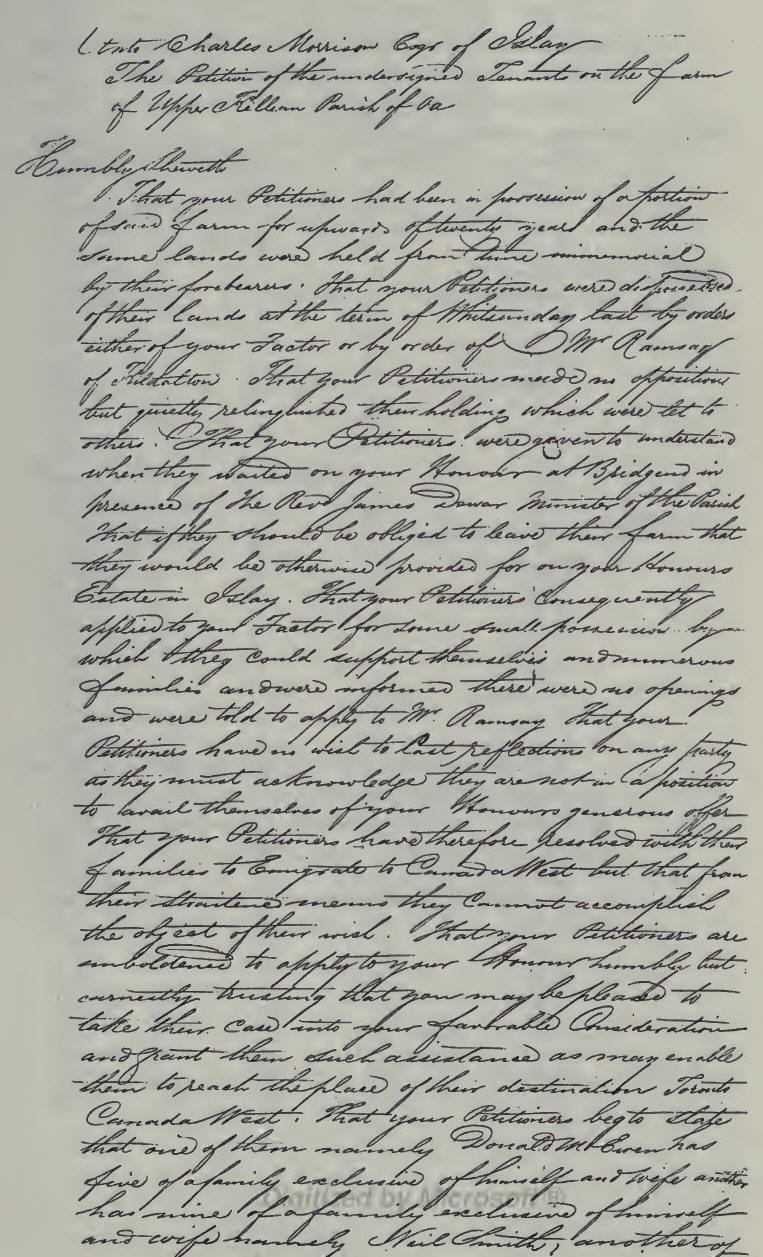 Unto Charles Morrison Esqr of Islay
The Petition of the undersigned Tenants on the farm
of Upper Killean Parish of Oa
Humbly Sheweth
That your Petitioners had been in possession of a portion
of said farm for upwards of twenty years and the
same lands were held from time immemorial
by their forebearers. That your Petitioners were dispossessed
of their lands at the term of Whitsunday last by orders
either of your Factor or by order of Mr Ramsay
of Kildalton. That your Petitioners made no opposition
but quietly relinquished their holding which were let to
others. That your Petitioners were given to understand
when they waited on your Honour at Bridgend in
presence of the Revd James Dewar Minister of the Parish
that if they should be obliged to leave their farm that
they would be otherwise provided for on your Honours
Estate in Islay. That your Petitioners consequently
applied to your Factor for some small possession by
which they could support themselves and numerous
families and were informed there were no openings
and were told to apply to Mr. Ramsay That your
Petitioners have no wish to Cast reflections on any party
as they must acknowledge they are not in a position
to avail themselves of your Honours generous offer
That your Petitioners have therefore resolved with their
families to Emigrate to Canada West but that from
their straitened means they Cannot accomplish
the object of their wish. That your Petitioners are
emboldened to apply to your Honour humbly but
earnestly trusting that you may be pleased to
take their case into your favorable Consideration
and grant them such assistance as may enable
them to reach the place of their destination Toronto
Canada West. That your Petitioners beg to state
that one of them namely Donald McEwen has
five of a family exclusive of himself and wife another
Digitized by Microsoft ®
has nine of a family exclusive of himself
and wife namely Neil Smith, another of